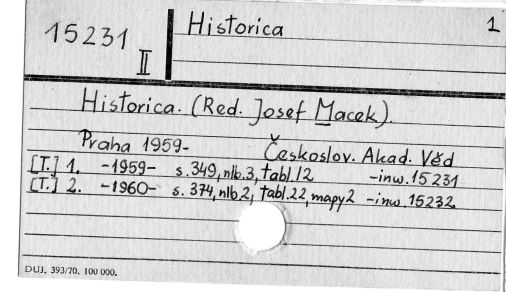 15231
II
Historica
1
Historica. (Red. Josef Macek).
Praha 1959-
Českoslov. Akad. Věd
[T.] 1. -1959- s. 349, nlb. 3, tabl. 12 -inw. 15231
[T.] 2. -1960- s. 374, nlb. 2, tabl. 22, mapy 2 -inw. 15232
DUJ. 393/70. 100 000.